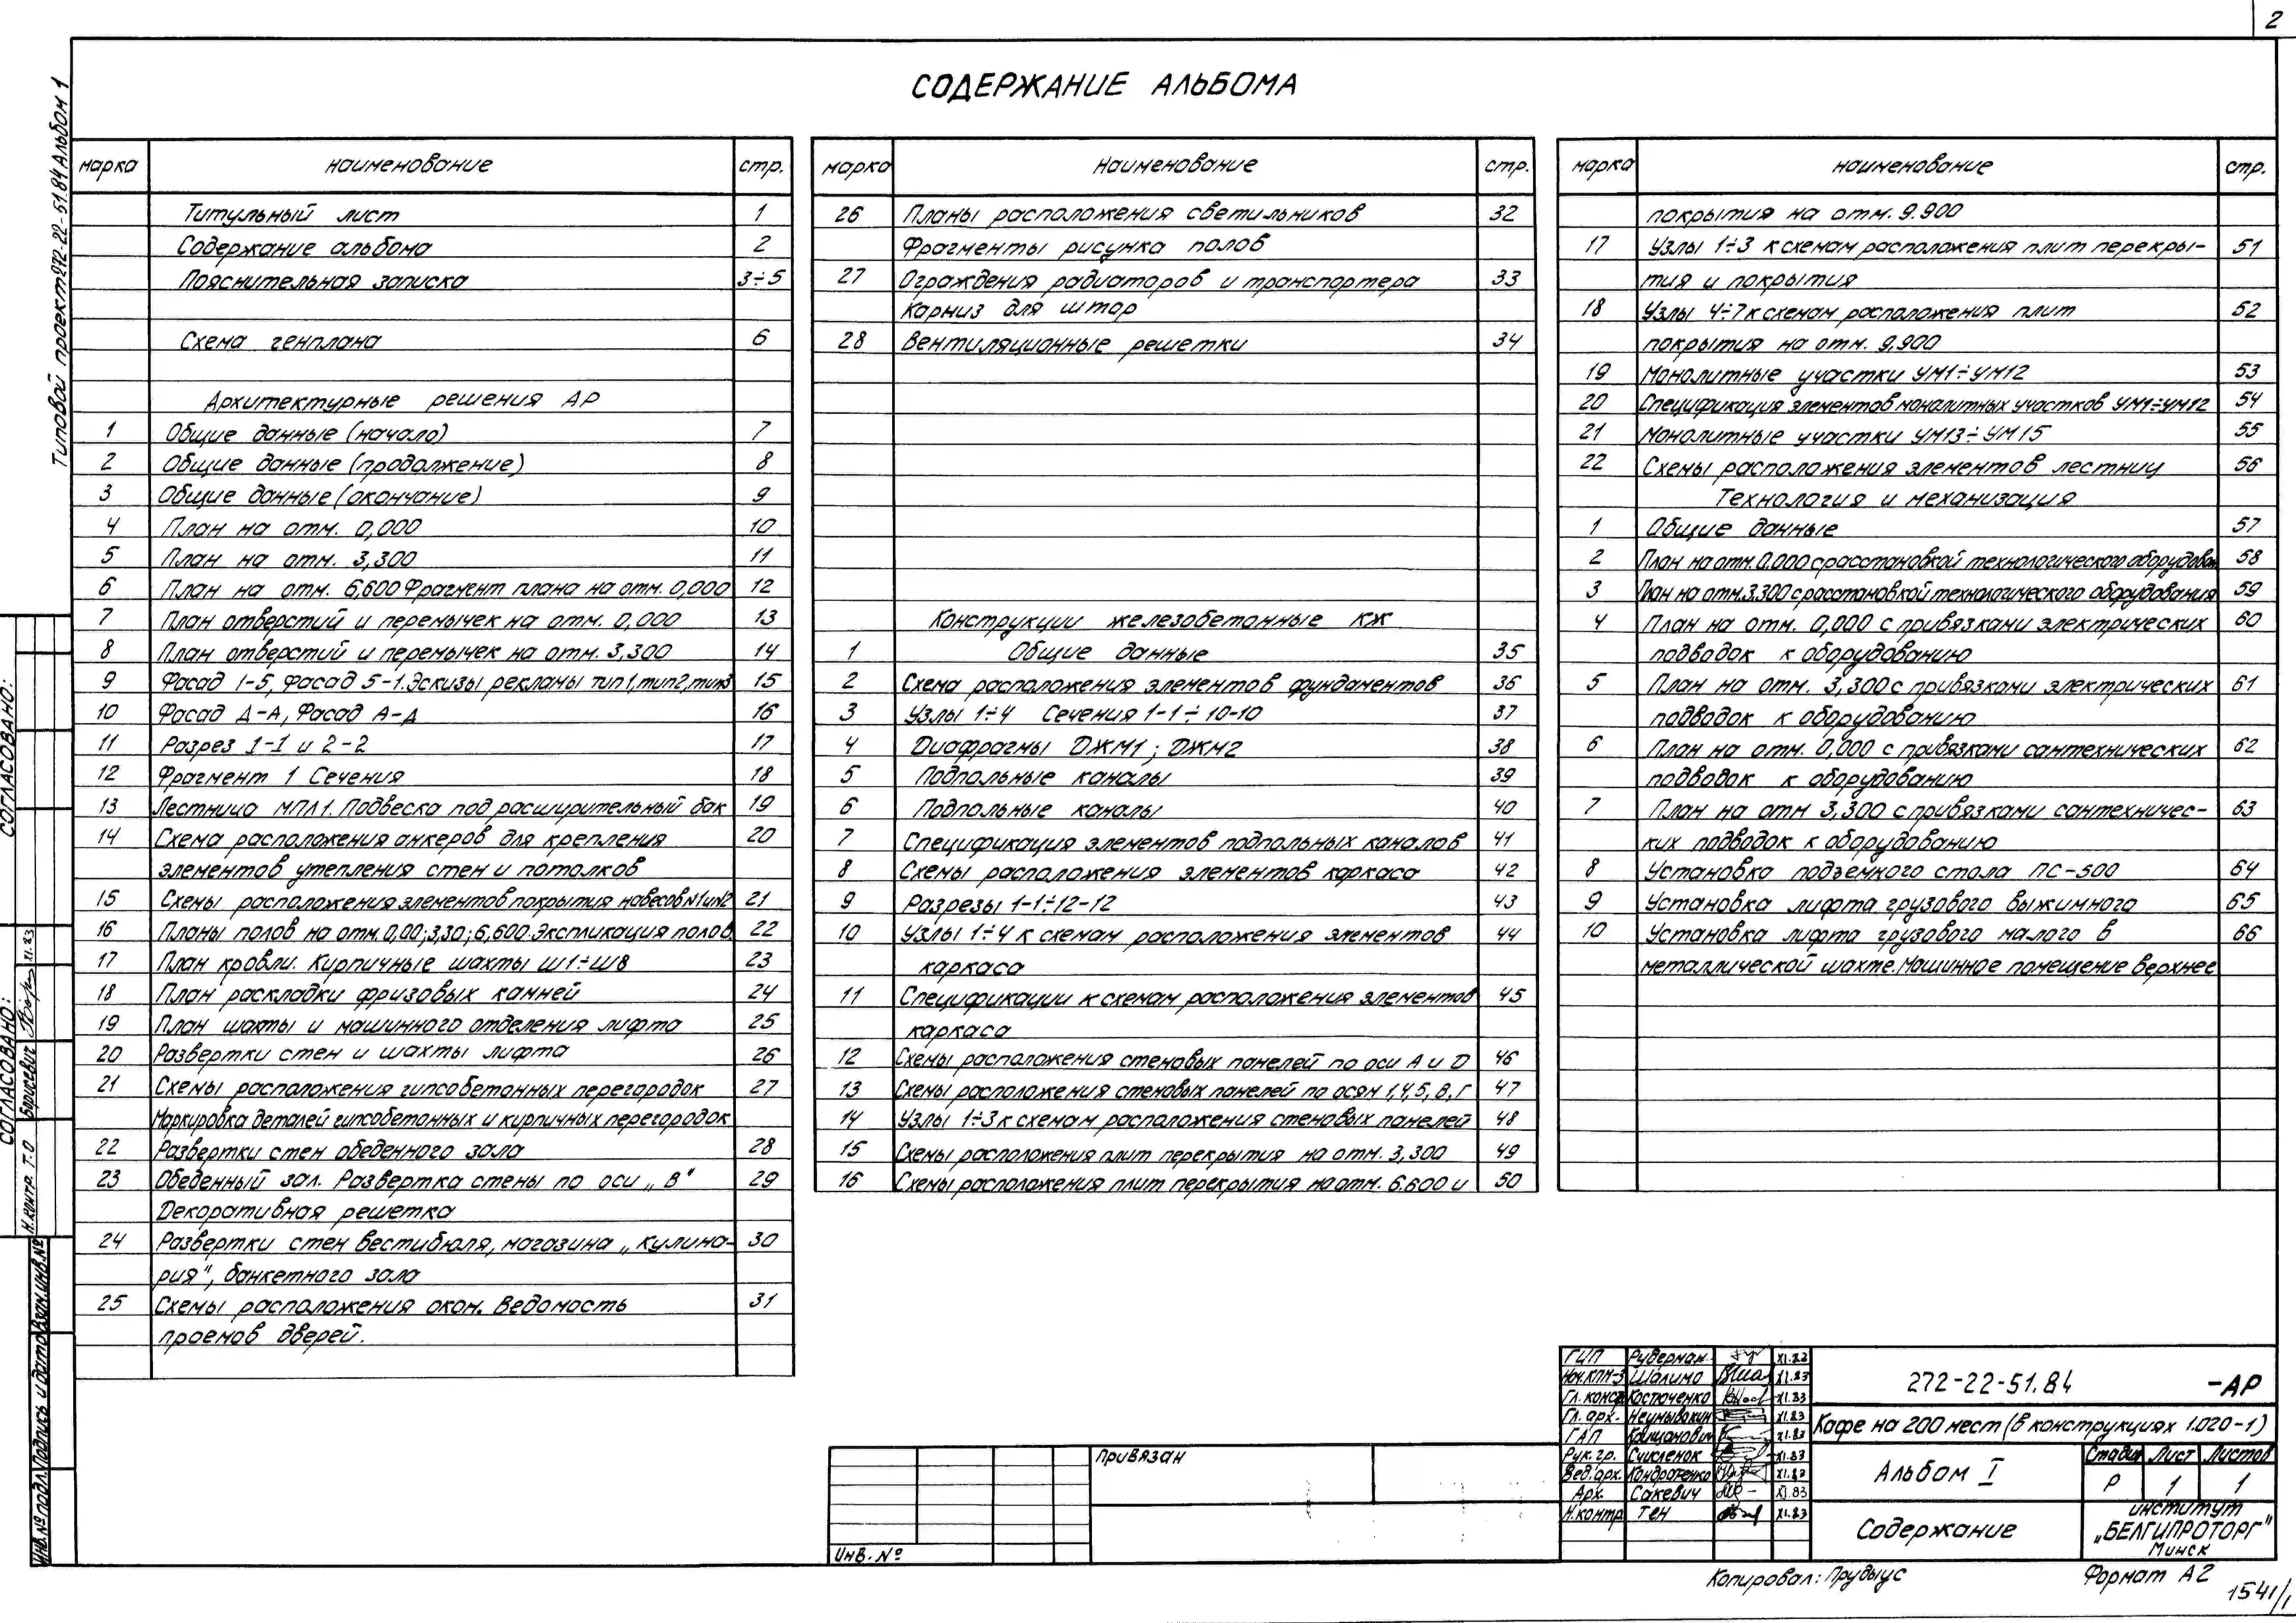 2
СОДЕРЖАНИЕ АЛЬБОМА
Типовой проект 272-22-51.84 Альбом 1
марка наименование стр.
Титульный лист 1
Содержание альбома 2
Пояснительная записка 3÷5
Схема генплана 6
Архитектурные решения АР
1 Общие данные (начало) 7
2 Общие данные (продолжение) 8
3 Общие данные (окончание) 9
4 План на отм. 0,000 10
5 План на отм. 3,300 11
6 План на отм. 6,600 Фрагмент плана на отм. 0,000 12
7 План отверстий и перемычек на отм. 0,000 13
8 План отверстий и перемычек на отм. 3,300 14
9 Фасад 1-5, Фасад 5-1. Эскизы рекламы тип 1, тип 2, тип 3 15
10 Фасад Д-А, Фасад А-Д 16
11 Разрез 1-1 и 2-2 17
12 Фрагмент 1 Сечения 18
13 Лестница МПЛ1. Подвеска под расширительный бак 19
14 Схема расположения анкеров для крепления 20
элементов утепления стен и потолков
15 Схемы расположения элементов покрытия навесов N1 и N2 21
16 Планы полов на отм. 0,00; 3,30; 6,600. Экспликация полов 22
17 План кровли. Кирпичные шахты Ш1÷Ш8 23
18 План раскладки фризовых камней 24
19 План шахты и машинного отделения лифта 25
20 Развертки стен и шахты лифта 26
21 Схемы расположения гипсобетонных перегородок 27
Маркировка деталей гипсобетонных и кирпичных перегородок
22 Развертки стен обеденного зала 28
23 Обеденный зал. Развертка стены по оси „В" 29
Декоративная решетка
24 Развертки стен вестибюля, магазина „Кулина- 30
рия", банкетного зала
25 Схемы расположения окон. Ведомость 31
проемов дверей.
марка наименование стр.
26 Планы расположения светильников 32
Фрагменты рисунка полов
27 Ограждения радиаторов и транспортера 33
Карниз для штор
28 Вентиляционные решетки 34
Конструкции железобетонные КЖ
1 Общие данные 35
2 Схема расположения элементов фундаментов 36
3 Узлы 1÷4 Сечения 1-1÷10-10 37
4 Диафрагмы ДЖМ1; ДЖМ2 38
5 Подпольные каналы 39
6 Подпольные каналы 40
7 Спецификация элементов подпольных каналов 41
8 Схемы расположения элементов каркаса 42
9 Разрезы 1-1÷12-12 43
10 Узлы 1÷4 к схемам расположения элементов 44
каркаса
11 Спецификации к схемам расположения элементов 45
каркаса
12 Схемы расположения стеновых панелей по оси А и Д 46
13 Схемы расположения стеновых панелей по осям 1,4,5,В,Г 47
14 Узлы 1÷3 к схемам расположения стеновых панелей 48
15 Схемы расположения плит перекрытия на отм. 3,300 49
16 Схемы расположения плит перекрытия на отм. 6.600 и 50
марка наименование стр.
покрытия на отм. 9.900
17 Узлы 1÷3 к схемам расположения плит перекры- 51
тия и покрытия
18 Узлы 4÷7 к схемам расположения плит 52
покрытия на отм. 9,900
19 Монолитные участки УМ1÷УМ12 53
20 Спецификация элементов монолитных участков УМ1÷УМ12 54
21 Монолитные участки УМ13÷УМ15 55
22 Схемы расположения элементов лестниц 56
Технология и механизация
1 Общие данные 57
2 План на отм. 0.000 с расстановкой технологического оборудован. 58
3 План на отм. 3.300 с расстановкой технологического оборудования 59
4 План на отм. 0,000 с привязками электрических 60
подводок к оборудованию
5 План на отм. 3,300 с привязками электрических 61
подводок к оборудованию
6 План на отм. 0,000 с привязками сантехнических 62
подводок к оборудованию
7 План на отм 3,300 с привязками сантехничес- 63
ких подводок к оборудованию
8 Установка подъемного стола ПС-500 64
9 Установка лифта грузового выжимного 65
10 Установка лифта грузового малого в 66
металлической шахте. Машинное помещение верхнее
СОГЛАСОВАНО:
СОГЛАСОВАНО:
Н.контр. Т.О Борисевич XI.83
Инв.№подл. Подпись и дата Взам.инв.№
Привязан
Инв. №
ГИП Рудерман XI.83
Нач.КПМ-3 Шалимо XI.83
Гл.констр Костюченко XI.83
Гл.арх. Неумывакин XI.83
ГАП XI.83
Рук.гр. Счисленок XI.83
Вед.арх. Кондратенко XI.83
Арх. Сакевич XI.83
Н.контр Тен XI.83
272-22-51.84 -АР
Кафе на 200 мест (в конструкциях 1.020-1)
Альбом I
Стадия Лист Листов
Р 1 1
Содержание
институт
„БЕЛГИПРОТОРГ"
Минск
Копировал: Прудыус
Формат А2
1541/1